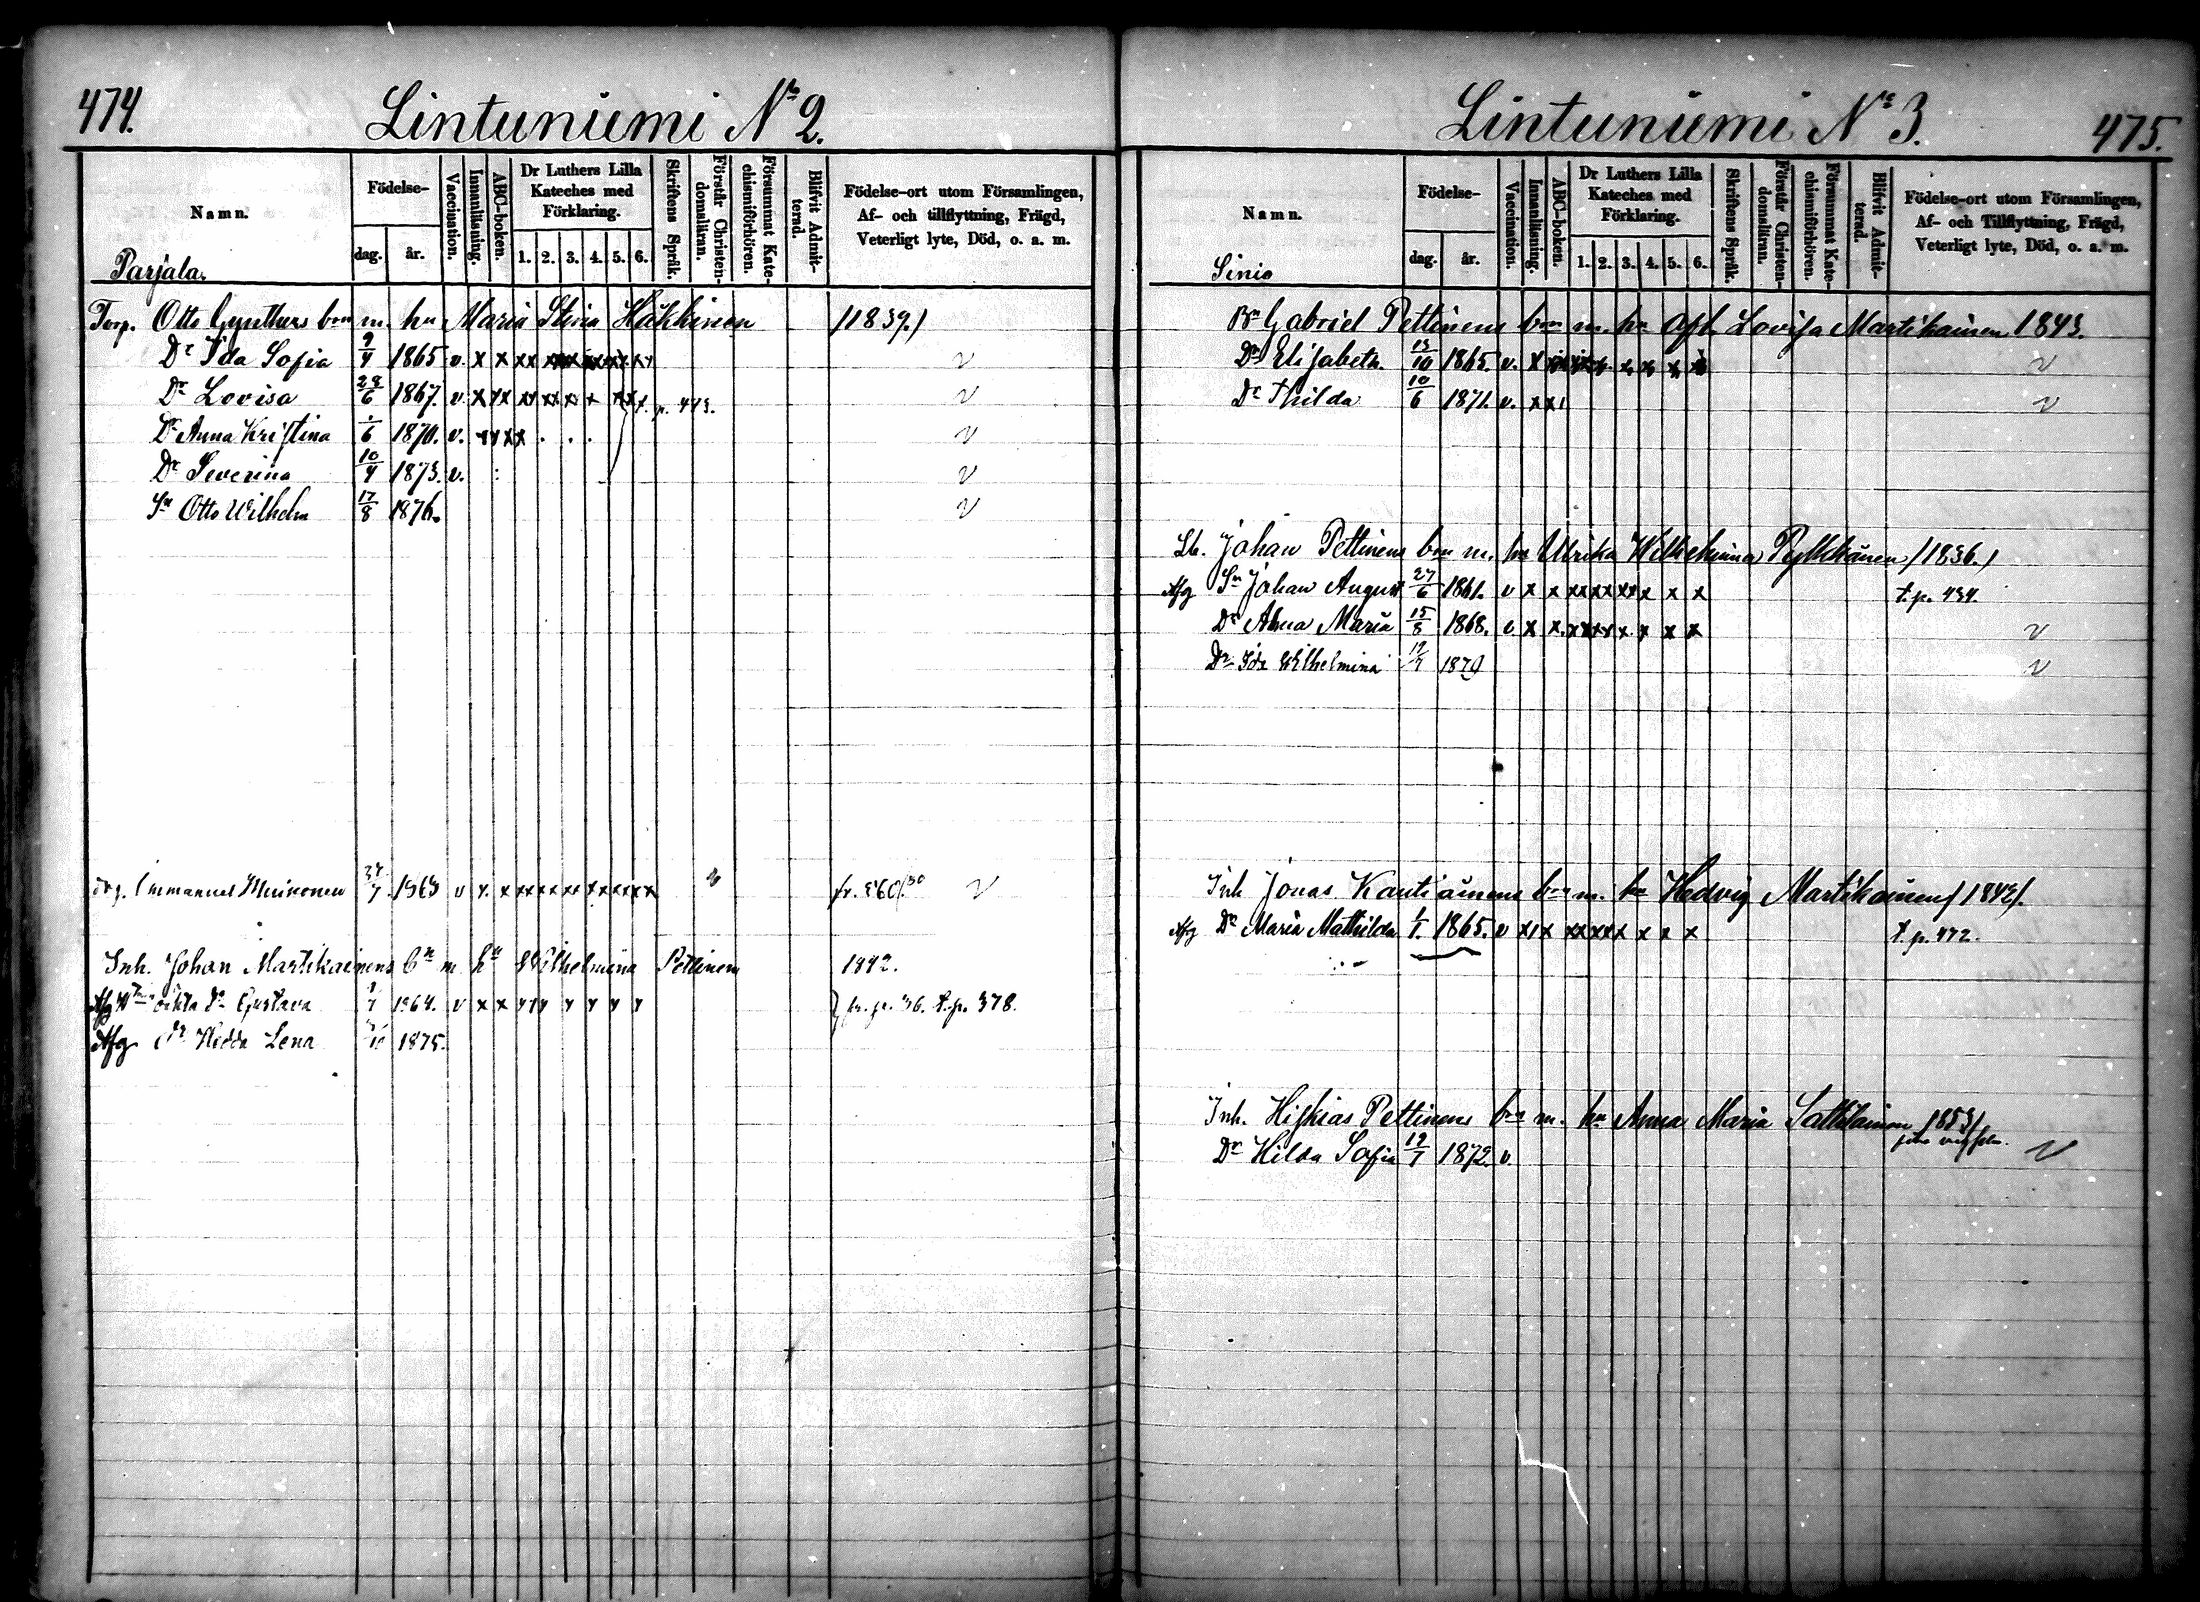 474.
Lintuniemi No 2.
Namn.
Födelse-
dag.
år.
Vaccination.
Innanläsning.
ABC-boken.
Dr Luthers Lilla
Kateches med
Förklaring.
1. 2. 3. 4. 5. 6.
Skriftens Språk.
Förstår Christen-
domsläran.
Försummat Kate-
chismiförhören.
Blifvit Admit-
terad.
Födelse-ort utom Församlingen,
Af- och tillflyttning, Frägd,
Veterligt lyte, Död, o. a. m.
Parjala.
Torp. Otto Gynthers bn m. hu Maria Stina Häkkinen /1839./
Dr Ida Sofia 9/4 1865 v. x x xx v
Dr Lovisa 28/6 1867. v. x xx xx xx xx x xx t. p. 473. v
Dr Anna Kristina 1/6 1870. v. xx xx . . . v
Dr Severina 10/4 1873. v. : v
Sn Otto Wilhelm 17/8 1876. v
Emmanuel Muinonen 1863 v x. x xx xx xx x xx xx xx v
Inh. Johan Martikainens bn m. hu Wilhelmina Pettinen 1842.
Afg Dr Gustava 1864. v x x fr. p. 36. t. p. 378.
Afg Dr Hedda Lena 1875.
475.
Lintuniemi No 3.
Namn.
Födelse-
dag.
år.
Vaccination.
Innanläsning.
ABC-boken.
Dr Luthers Lilla
Kateches med
Förklaring.
1. 2. 3. 4. 5. 6.
Skriftens Språk.
Förstår Christen-
domsläran.
Försummat Kate-
chismiförhören.
Blifvit Admit-
terad.
Födelse-ort utom Församlingen,
Af- och Tillflyttning, Frägd,
Veterligt lyte, Död, o. a. m.
Sinio
Bn Gabriel Pettinens bn m. hu afl. Lovisa Martikainen 1843.
Dr Elisabeth. 13/10 1865. v. x v
Dr Thilda 10/6 1871. v. xx v
Lb. Johan Pettinens bn m. hu Ulrika Wilhelmina Pylkkänen /1836./
Afg Sn Johan August 27/6 1861. v x x xx xx xx x x x t. p. 434.
Dr Anna Maria 15/8 1868. v x x. xx xx x. x x x v
Dr Ida Wilhelmina 1879 v
Inh Jonas Kautiainens bn m. hu Hedvig Martikainen /1842/.
Afg Dr Maria Mathilda 1/1. 1865. v xx x xx xx x x x x t. p. 472.
Inh. Hiskias Pettinens bn m. hu Anna Maria Sallilainen 1853/
Dr Hilda Sofia 19/7 1872. v. v